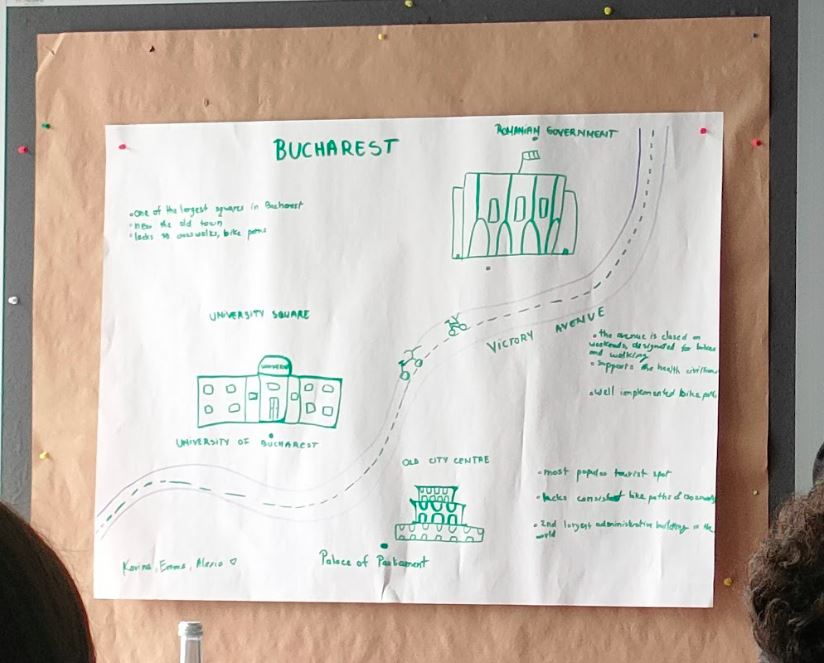 BUCHAREST
ROMANIAN GOVERNMENT
• one of the largest squares in Bucharest
• near the old town
• lacks crosswalks, bike paths
UNIVERSITY SQUARE
UNIVERSITY OF BUCHAREST
VICTORY AVENUE
• the avenue is closed on
weekends, designated for bikes
and walking
• supports the health
• well implemented bike
OLD CITY CENTRE
• most popular tourist spot
• lacks consistent bike paths
• 2nd largest administrative building in the
world
Palace of Parliament